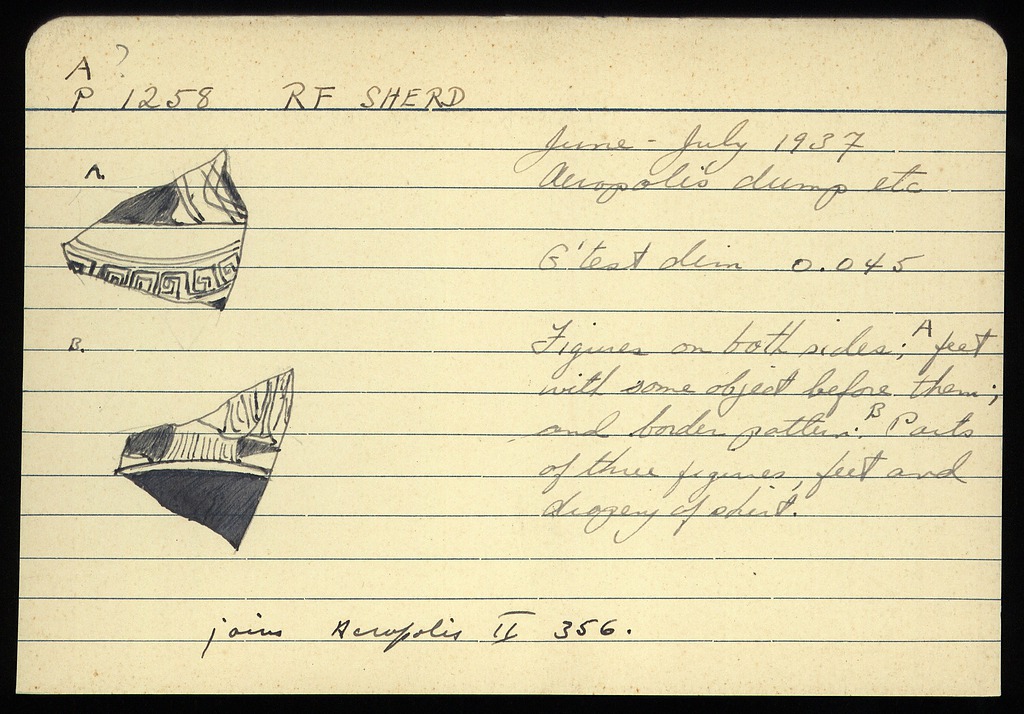 A ?
P 1258 RF SHERD
June - July 1937
A.
Acropolis dump etc
G'test dim 0.045
Figures on both sides; A feet
B.
with some object before them;
and border pattern. B Parts
of three figures, feet and
drapery of skirt.
joins Acropolis II 356.